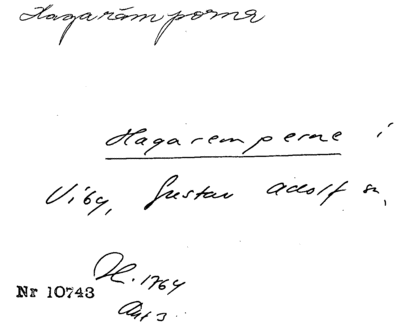 Hagarämporna
Hagaremperne i
Viby, Gustav Adolf sn,
H. 1764
Nr 10743